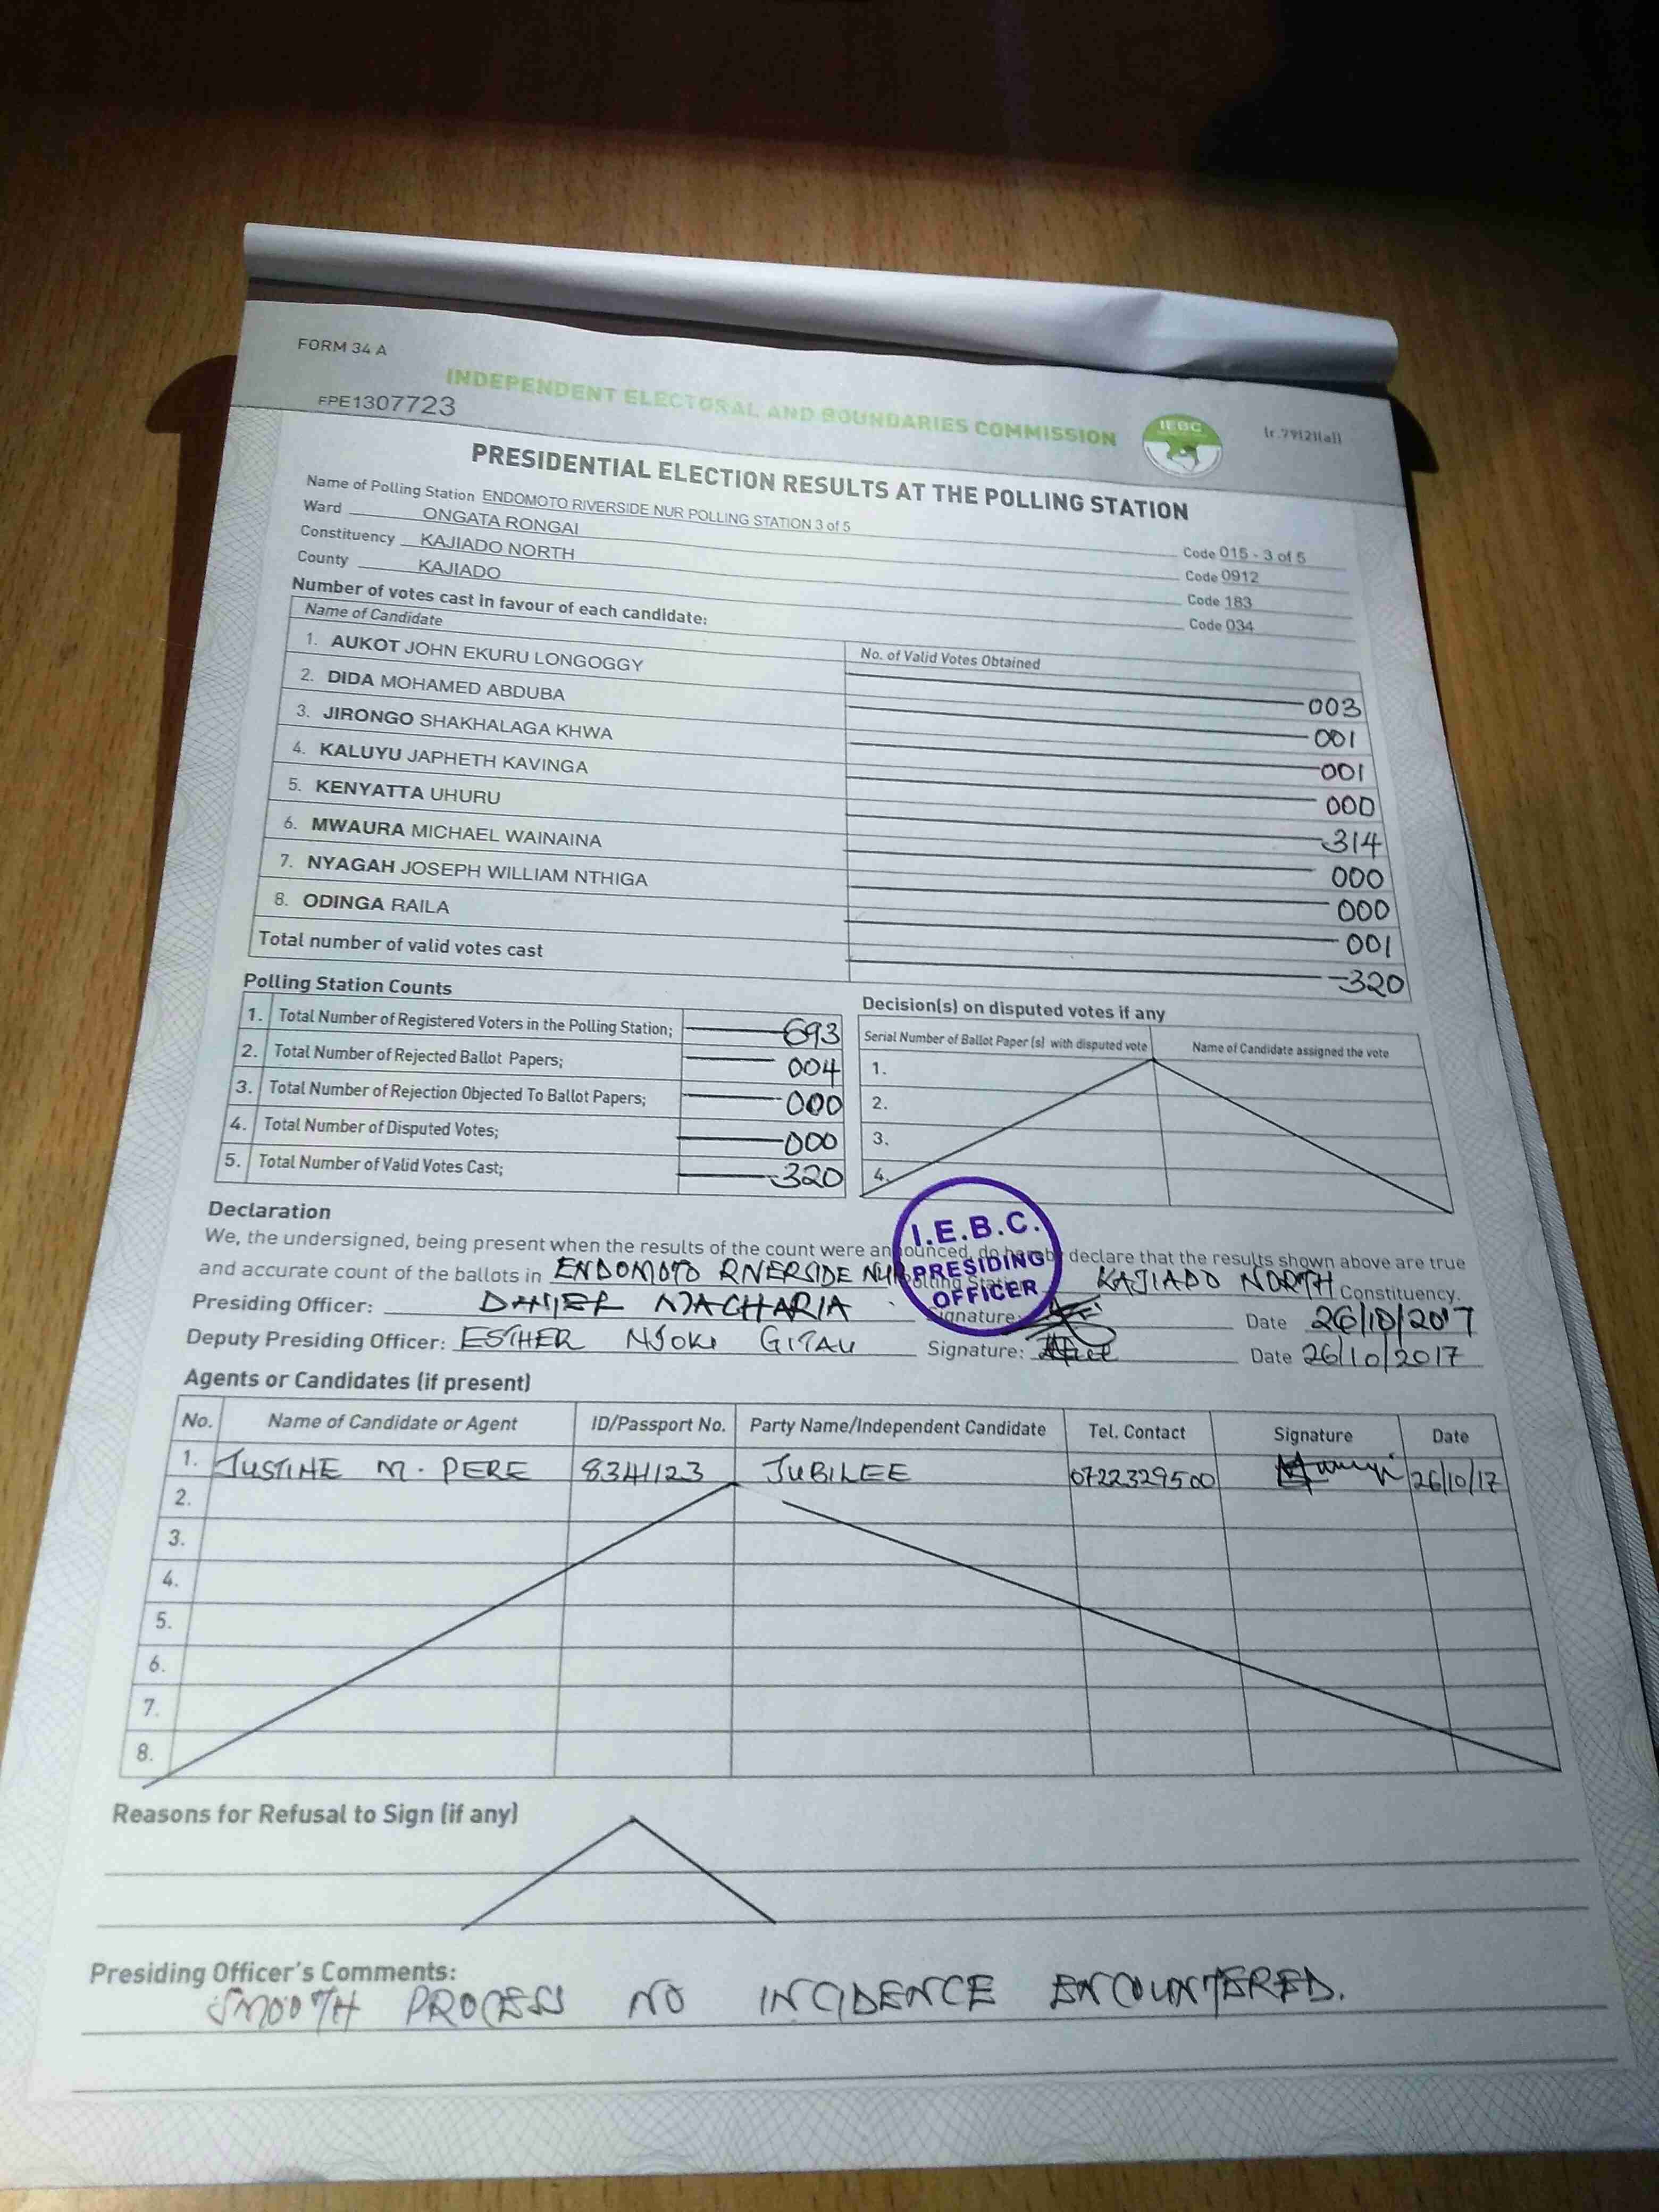 FORM 34 A
INDEPENDENT ELECTORAL AND BOUNDARIES COMMISSION
IEBC
(r.79(2)(a))
FPE1307723
PRESIDENTIAL ELECTION RESULTS AT THE POLLING STATION
Name of Polling Station ENDOMOTO RIVERSIDE NUR POLLING STATION 3 of 5 Code 015 - 3 of 5
Ward ONGATA RONGAI Code 0912
Constituency KAJIADO NORTH Code 183
County KAJIADO Code 034
Number of votes cast in favour of each candidate:
Name of Candidate No. of Valid Votes Obtained
1. AUKOT JOHN EKURU LONGOGGY 003
2. DIDA MOHAMED ABDUBA 001
3. JIRONGO SHAKHALAGA KHWA 001
4. KALUYU JAPHETH KAVINGA 000
5. KENYATTA UHURU 314
6. MWAURA MICHAEL WAINAINA 000
7. NYAGAH JOSEPH WILLIAM NTHIGA 000
8. ODINGA RAILA 001
Total number of valid votes cast 320
Polling Station Counts
1. Total Number of Registered Voters in the Polling Station; 693
2. Total Number of Rejected Ballot Papers; 004
3. Total Number of Rejection Objected To Ballot Papers; 000
4. Total Number of Disputed Votes; 000
5. Total Number of Valid Votes Cast; 320
Decision(s) on disputed votes if any
Serial Number of Ballot Paper (s) with disputed vote Name of Candidate assigned the vote
1.
2.
3.
4.
Declaration
We, the undersigned, being present when the results of the count were announced, do hereby declare that the results shown above are true
and accurate count of the ballots in ENDOMOTO RIVERSIDE NUR Polling Station KAJIADO NORTH Constituency.
I.E.B.C.
PRESIDING
OFFICER
Presiding Officer: DANIEL MACHARIA Signature: Date 26/10/2017
Deputy Presiding Officer: ESTHER NJOKI GITAU Signature: Date 26/10/2017
Agents or Candidates (if present)
No. Name of Candidate or Agent ID/Passport No. Party Name/Independent Candidate Tel. Contact Signature Date
1. JUSTINE M. PERE 8341123 JUBILEE 0722329500 26/10/17
2.
3.
4.
5.
6.
7.
8.
Reasons for Refusal to Sign (if any)
Presiding Officer's Comments:
SMOOTH PROCESS NO INCIDENCE ENCOUNTERED.